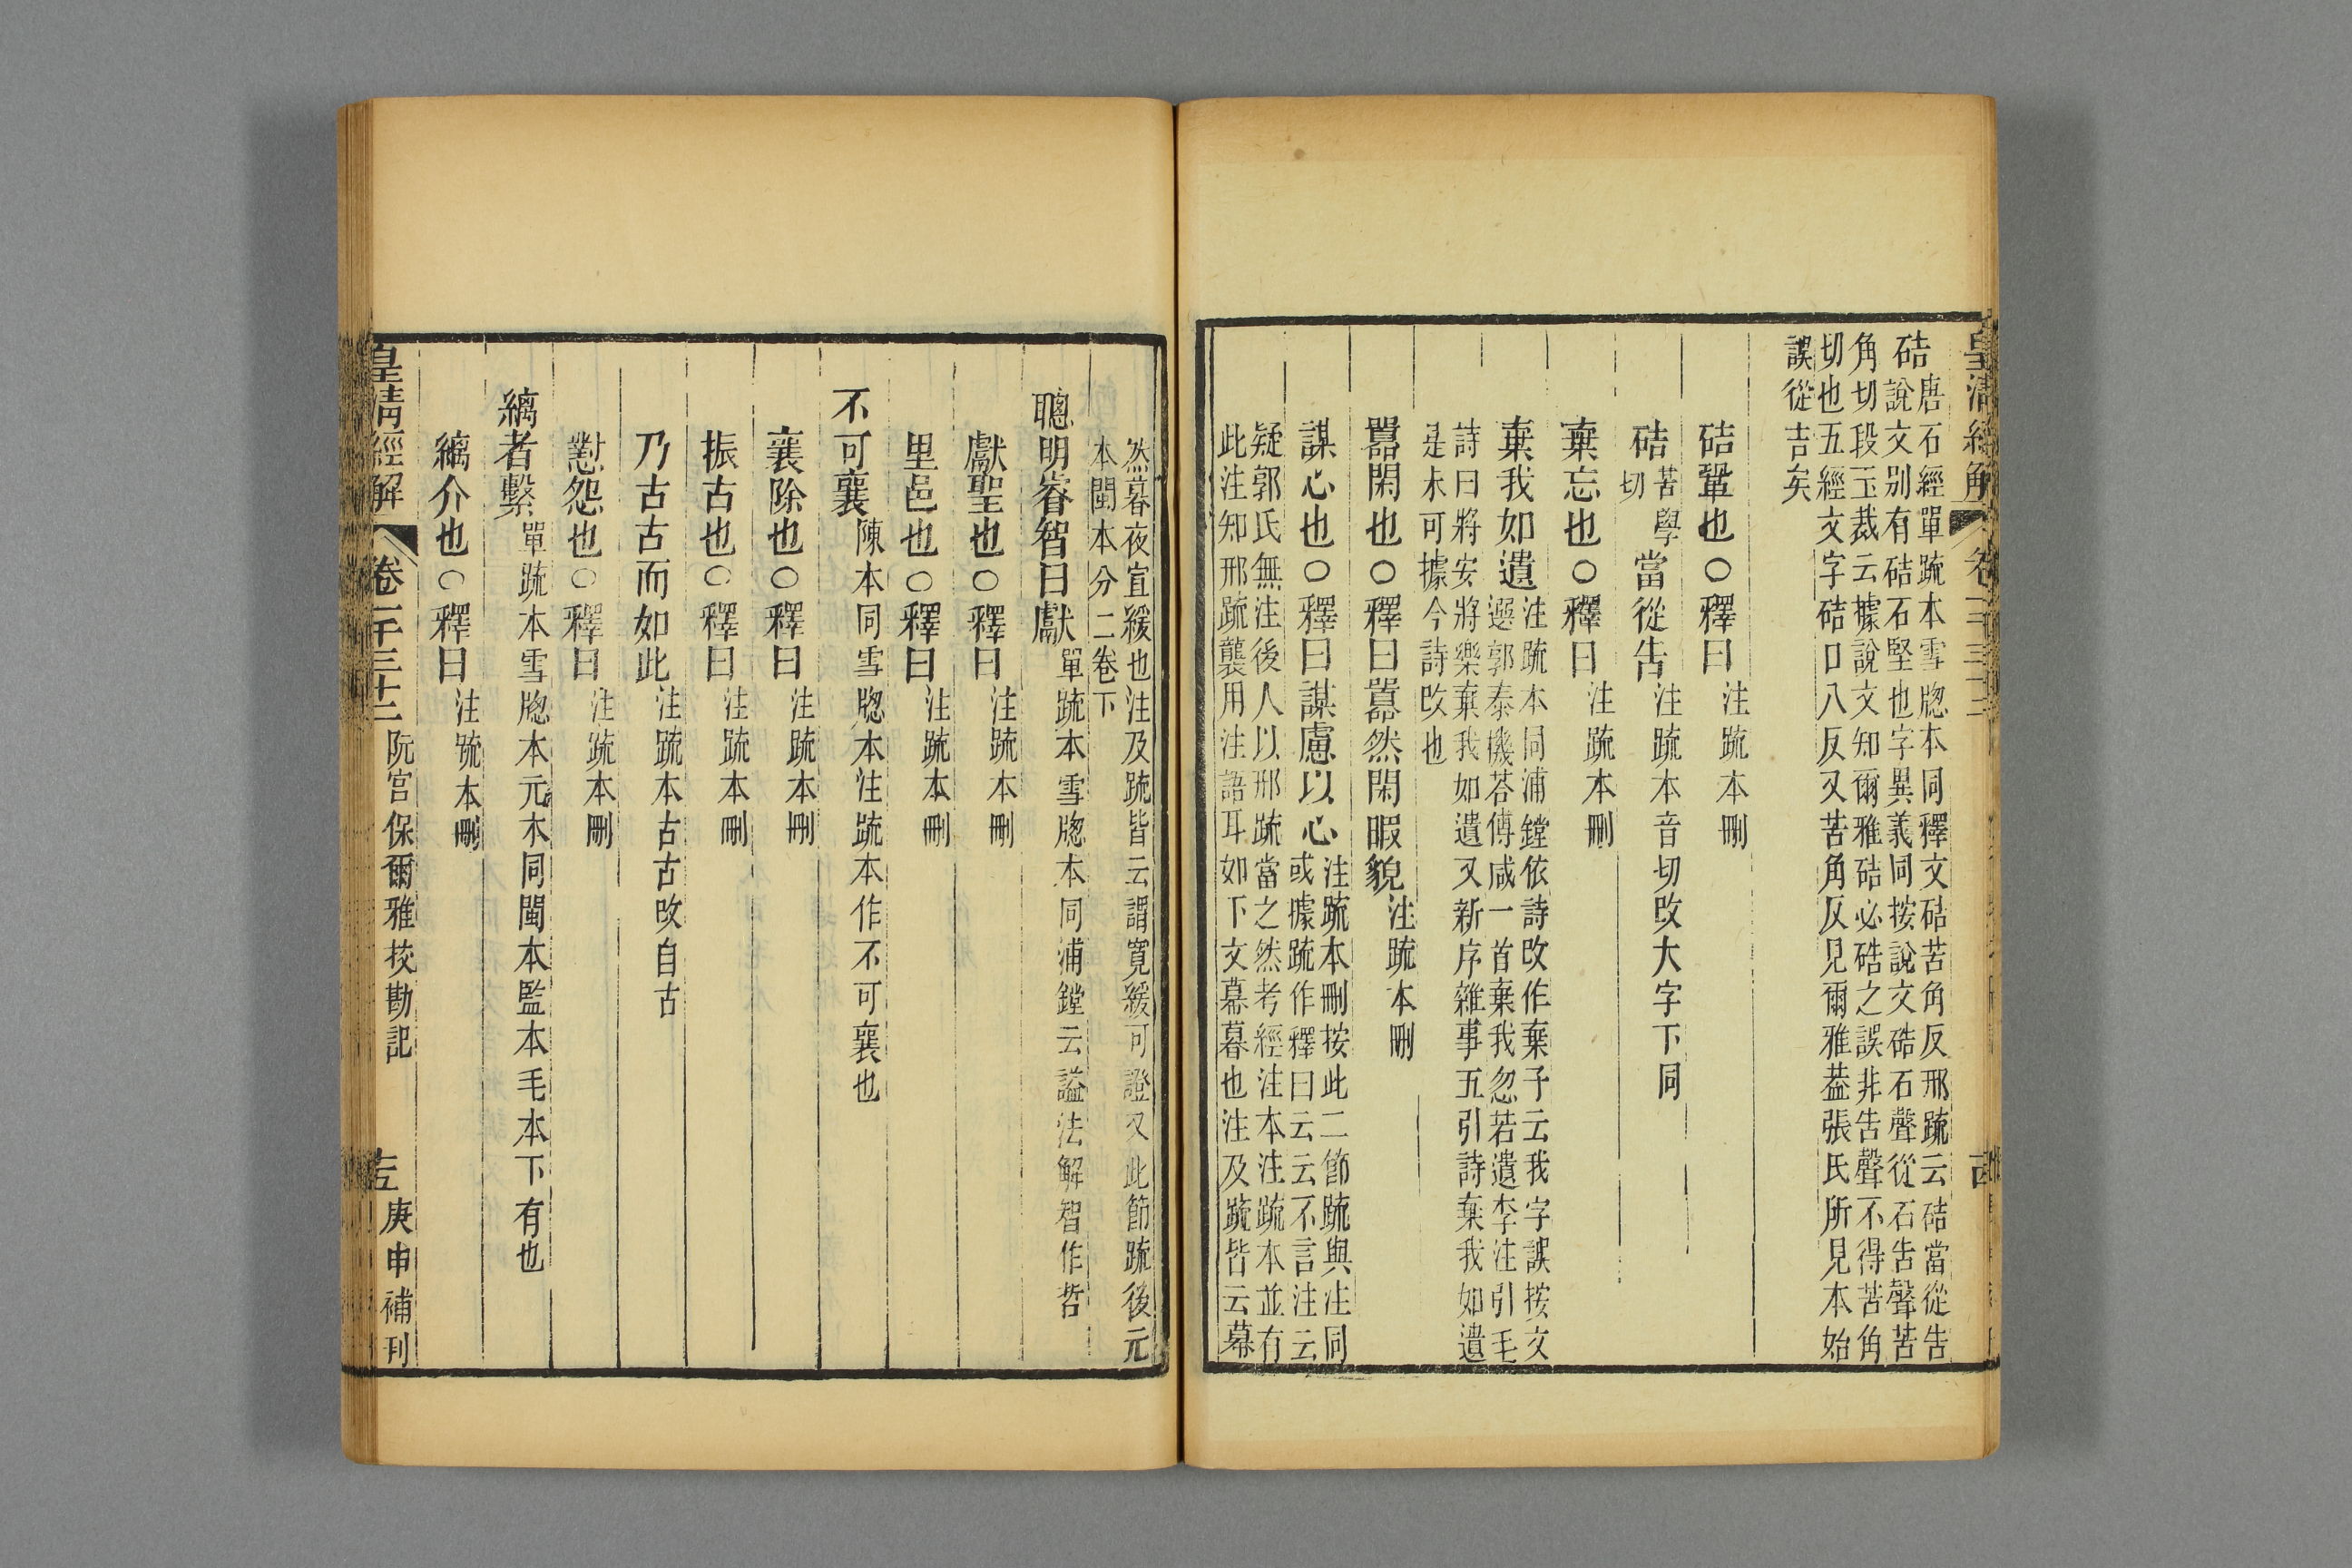 皇清經解 卷一千三十二 古
硈唐石經單疏本雪牕本同釋文硈苦角反邢疏云硈當從告
說文別有硈石堅也字異義同按說文硞石聲從石告聲苦
角切段玉裁云據說文知爾雅硈必硞之誤非告聲不得苦角
切也五經文字硈口八反又苦角反見爾雅葢張氏所見本始
誤從吉矣
硈鞏也○釋曰注疏本刪
硈苦學切當從告注疏本音切攺大字下同
棄忘也○釋曰注疏本刪
棄我如遺注疏本同浦鏜依詩攺作棄子云我字誤按文
選郭泰機荅傅咸一首棄我忽若遺李注引毛
詩曰將安將樂棄我如遺又新序雜事五引詩棄我如遺
是未可據今詩攺也
嚣閑也○釋曰嚣然閑暇貌注疏本刪
謀心也○釋曰謀慮以心注疏本刪按此二節疏與注同
或據疏作釋曰云云不言注云
疑郭氏無注後人以邢疏當之然考經注本注疏本並有
此注知邢疏襲用注語耳如下文幕暮也注及疏皆云幕
然暮夜宜緩也注及疏皆云謂寬緩可證又此節疏後元
本閩本分二卷下
聰明睿智曰獻單疏本雪牕本同浦鏜云謚法解智作哲
獻聖也○釋曰注疏本刪
里邑也○釋曰注疏本刪
不可襄陳本同雪牕本注疏本作不可襄也
襄除也○釋曰注疏本刪
振古也○釋曰注疏本刪
乃古古而如此注疏本古古攺自古
懟怨也○釋曰注疏本刪
縭者繫單疏本雪牕本元本同閩本監本毛本下有也
縭介也○釋曰注疏本刪
皇清經解 卷一千三十二 阮宮保爾雅挍勘記 庚申補刊